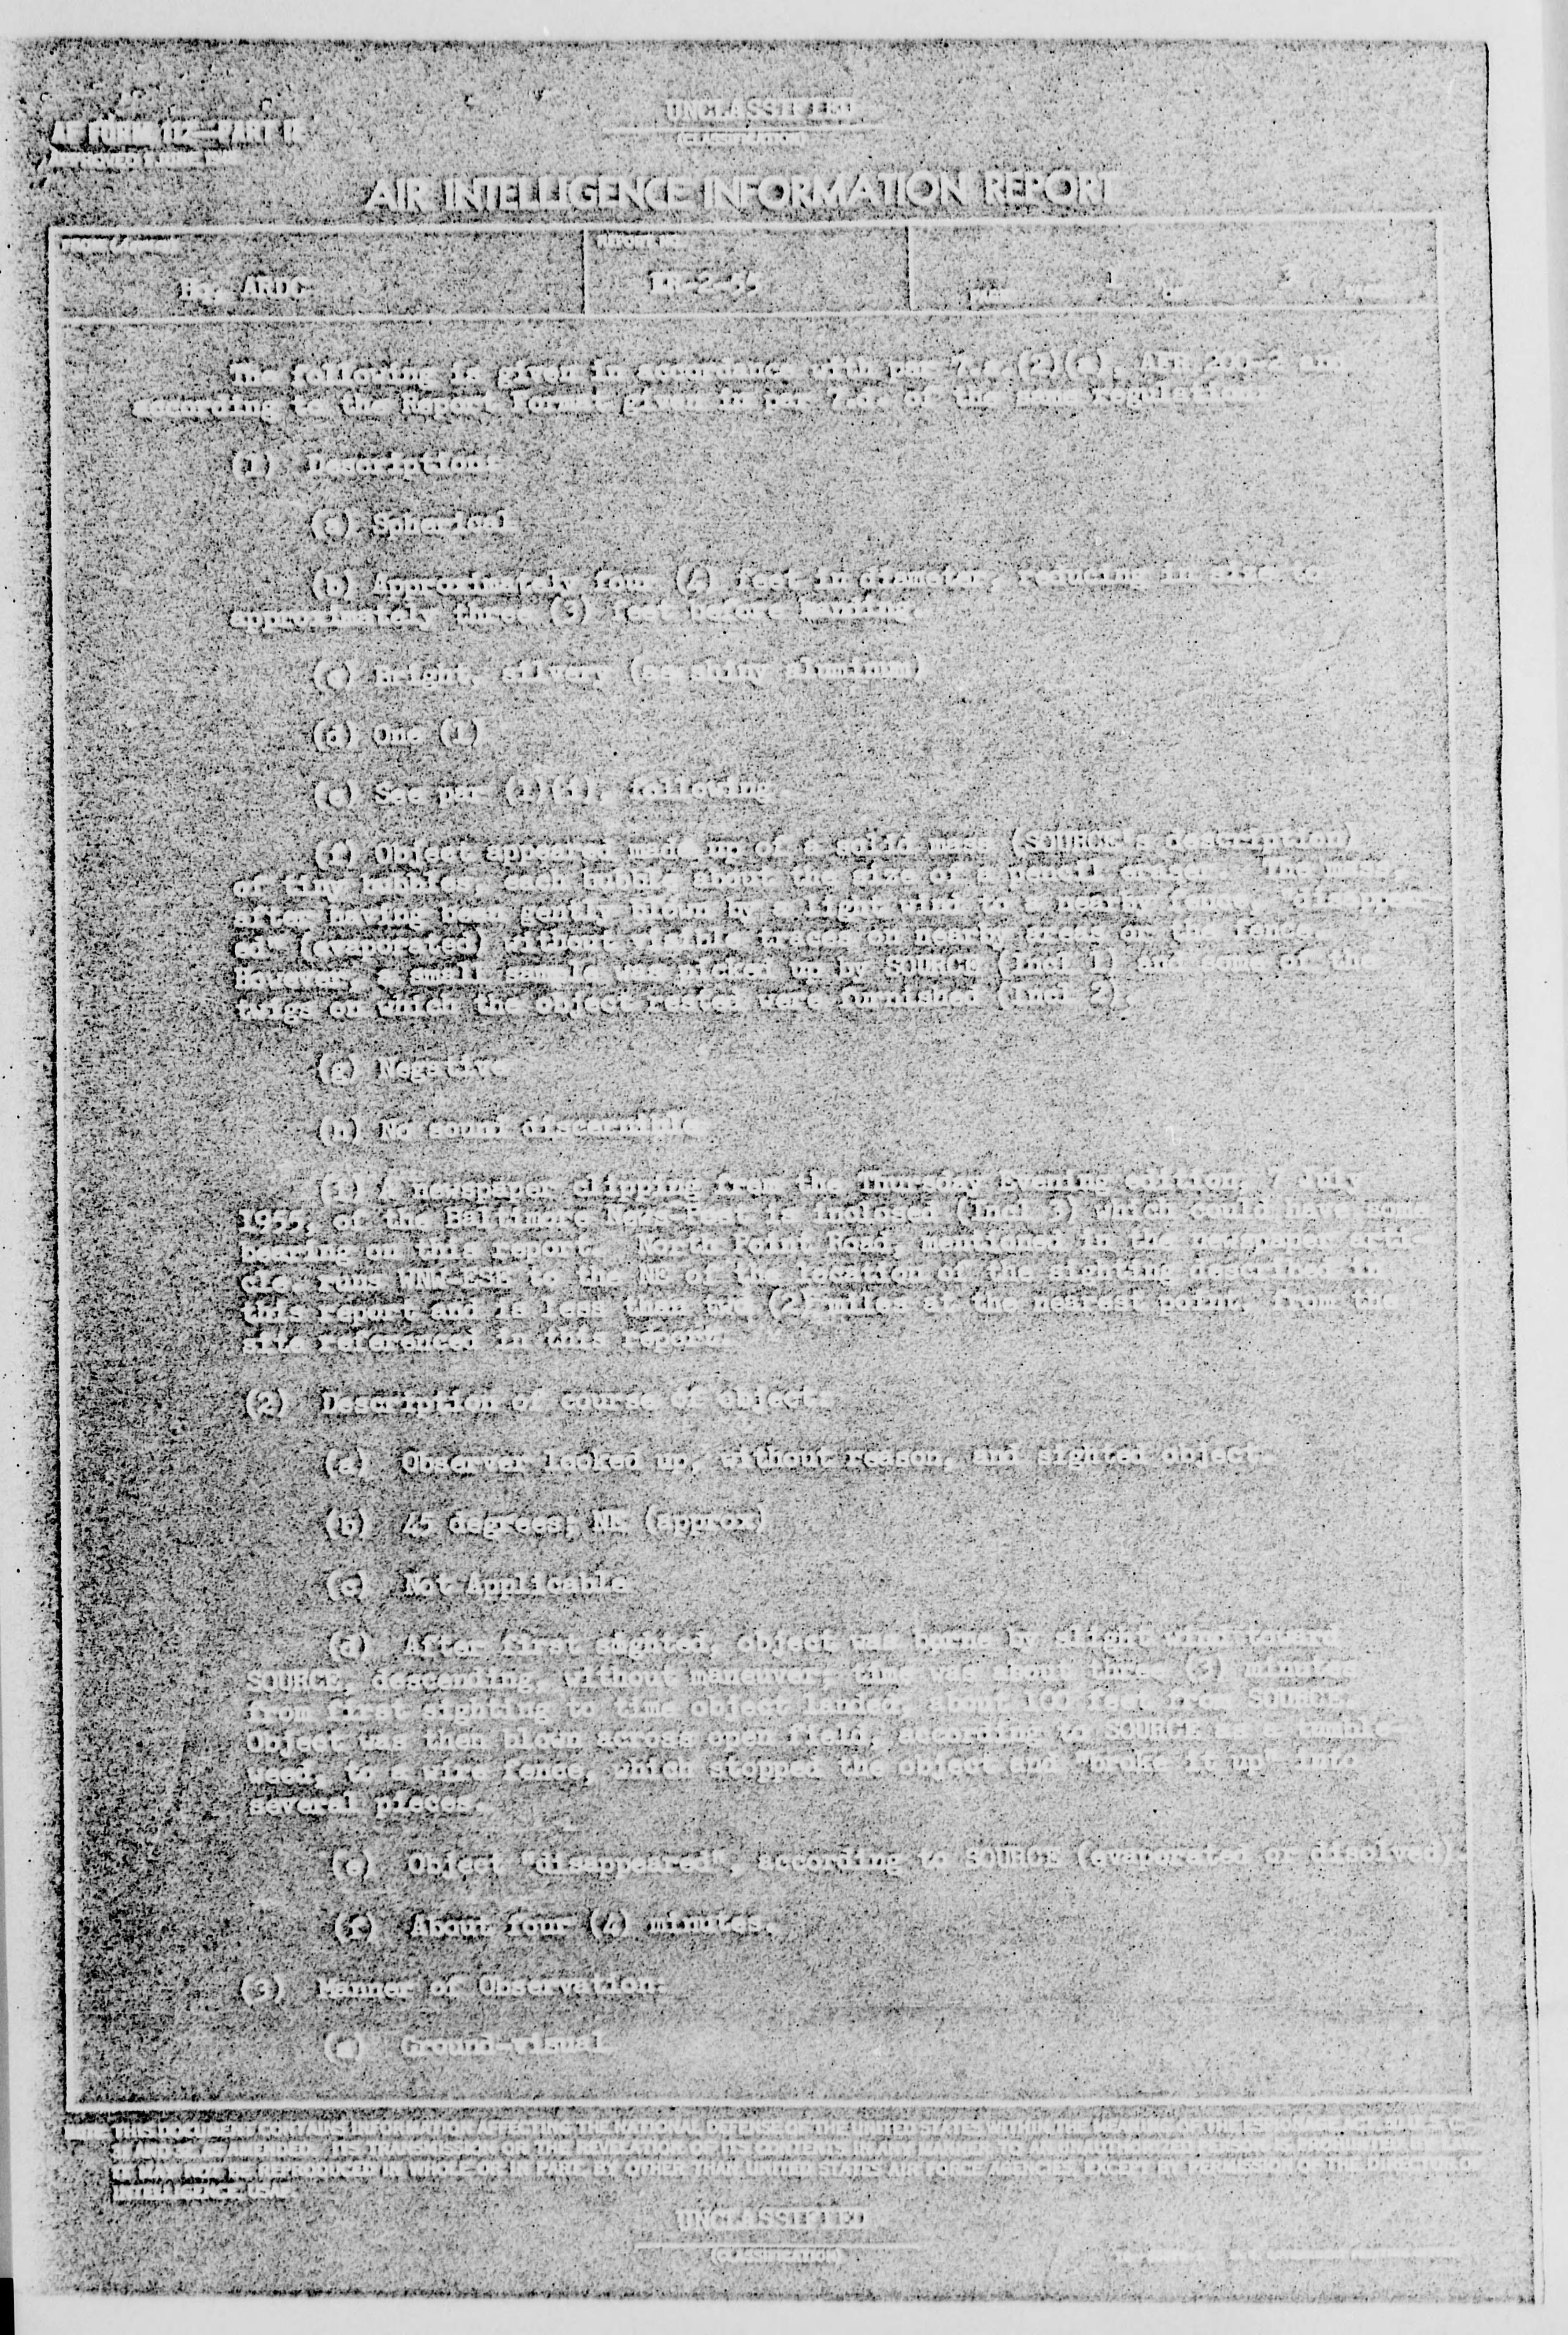 UNCLASSIFIED
(CLASSIFICATION)
AF FORM 112—PART II
APPROVED 1 JUNE 1948
AIR INTELLIGENCE INFORMATION REPORT
REPORT NO.
Hq. ARDC
IR-2-55
PAGE 1 OF 3 PAGES
The following is given in accordance with par 7.e.(2)(a), AFR 200-2 and
according to the Report Format given in par 7.d. of the same regulation:
(1) Description:
(a) Spherical
(b) Approximately four (4) feet in diameter, reducing in size to
approximately three (3) feet before landing.
(c) Bright, silvery (as shiny aluminum)
(d) One (1)
(e) See par (1)(f), following.
(f) Object appeared made up of a solid mass (SOURCE's description)
of tiny bubbles, each bubble about the size of a pencil eraser. The mass,
after having been gently blown by a light wind to a nearby fence, "disappear-
ed" (evaporated) without visible traces on nearby areas or the fence.
However, a small sample was picked up by SOURCE (Incl 1) and some of the
twigs on which the object rested were furnished (Incl 2).
(g) Negative
(h) No sound discernible
(i) A newspaper clipping from the Thursday Evening edition, 7 July
1955, of the Baltimore News-Post is inclosed (Incl 3) which could have some
bearing on this report. North Point Road, mentioned in the newspaper arti-
cle, runs WNW-ESE to the NE of the location of the sighting described in
this report and is less than two (2) miles at the nearest point, from the
site referenced in this report.
(2) Description of course of object:
(a) Observer looked up, without reason, and sighted object.
(b) 45 degrees; NE (approx)
(c) Not Applicable
(d) After first sighted, object was borne by slight wind toward
SOURCE, descending, without maneuver; time was about three (3) minutes
from first sighting to time object landed, about 100 feet from SOURCE.
Object was then blown across open field, according to SOURCE as a tumble-
weed, to a wire fence, which stopped the object and "broke it up" into
several pieces.
(e) Object "disappeared", according to SOURCE (evaporated or disolved).
(f) About four (4) minutes.
(3) Manner of Observation:
(a) Ground-visual
NOTE: THIS DOCUMENT CONTAINS INFORMATION AFFECTING THE NATIONAL DEFENSE OF THE UNITED STATES WITHIN THE MEANING OF THE ESPIONAGE ACT, 50 U. S. C.—
31 AND 32, AS AMENDED. ITS TRANSMISSION OR THE REVELATION OF ITS CONTENTS IN ANY MANNER TO AN UNAUTHORIZED PERSON IS PROHIBITED BY LAW.
IT MAY NOT BE REPRODUCED IN WHOLE OR IN PART, BY OTHER THAN UNITED STATES AIR FORCE AGENCIES, EXCEPT BY PERMISSION OF THE DIRECTOR OF
INTELLIGENCE, USAF.
UNCLASSIFIED
(CLASSIFICATION)